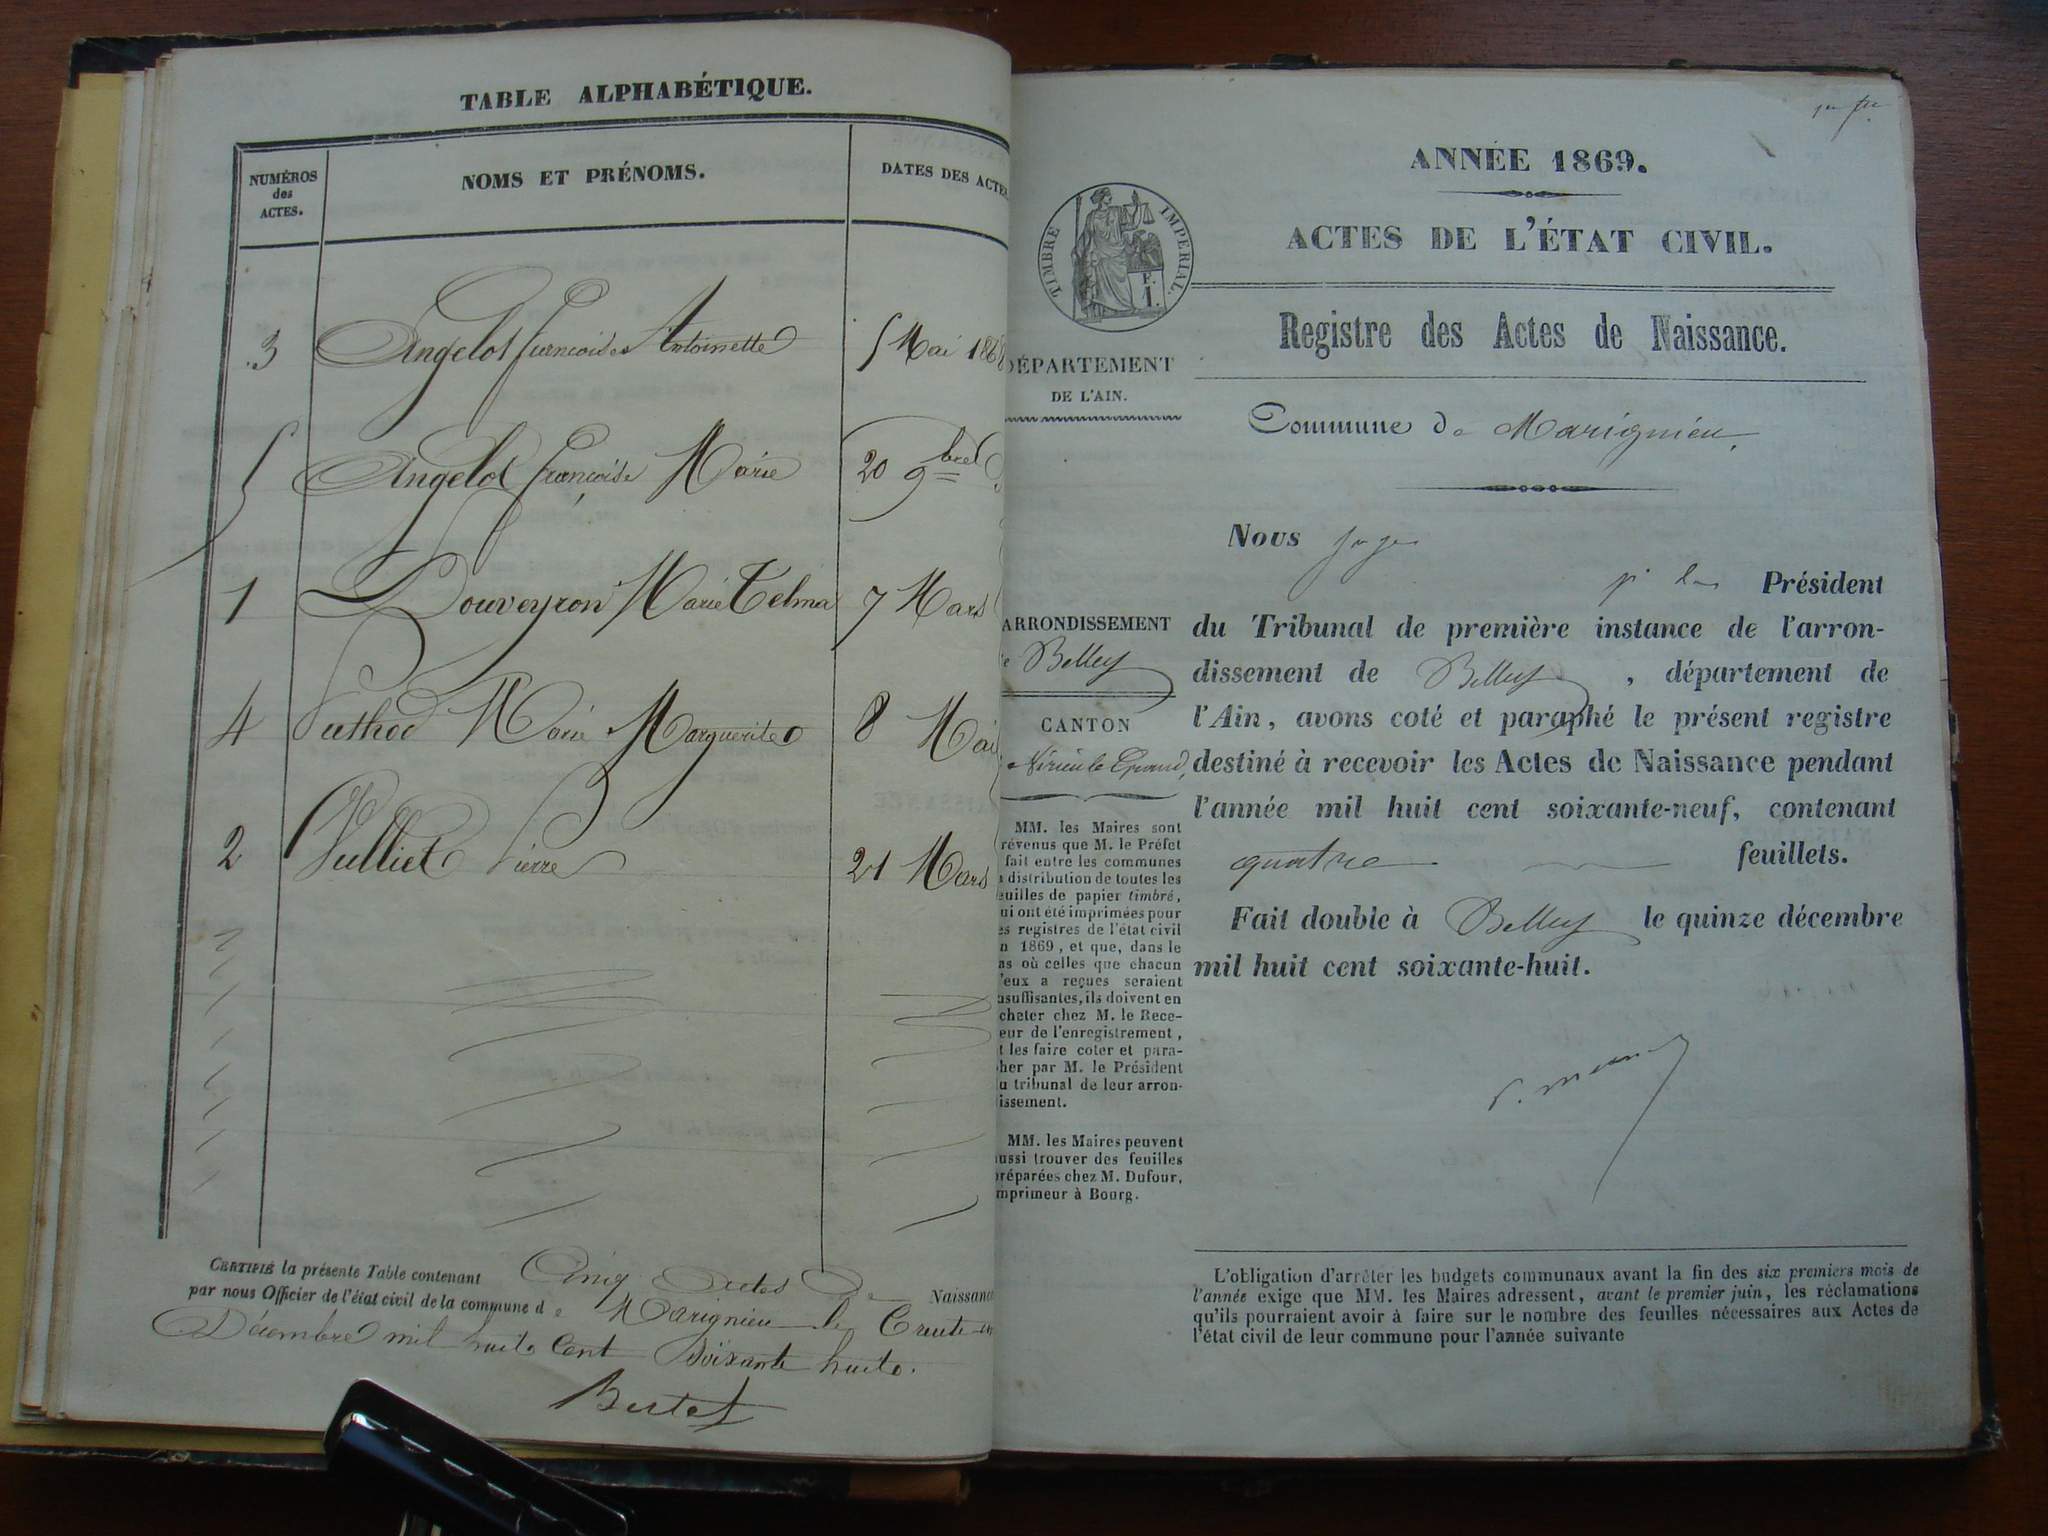 TABLE ALPHABÉTIQUE.
NUMÉROS des ACTES. NOMS ET PRÉNOMS. DATES DES ACTES
3 Angelot Françoise Antoinette 5 Mai 1868
5 Angelot Françoise Marie 20 9bre
1 Douveyron Marie Telma 7 Mars
4 Puthod Marie Marguerite 8 Mai
2 Vulliet Pierre 21 Mars
CERTIFIÉ la présente Table contenant Cinq Actes de Naissance
par nous Officier de l'état civil de la commune de Marignieu le Trente un
Décembre mil huit Cent Soixante huit.
Bertet
ANNÉE 1869.
ACTES DE L'ÉTAT CIVIL.
TIMBRE IMPÉRIAL.
Registre des Actes de Naissance.
DÉPARTEMENT
DE L'AIN.
Commune de Marignieu
Nous juge
Président
ARRONDISSEMENT
de Belley
du Tribunal de première instance de l'arron-
dissement de Belley, département de
l'Ain, avons coté et paraphé le présent registre
destiné à recevoir les Actes de Naissance pendant
l'année mil huit cent soixante-neuf, contenant
quatre feuillets.
Fait double à Belley le quinze décembre
mil huit cent soixante-huit.
CANTON
Virieu le Grand
MM. les Maires sont
révenus que M. le Préfet
fait entre les communes
a distribution de toutes les
euilles de papier timbré,
ui ont été imprimées pour
es registres de l'état civil
n 1869, et que, dans le
as où celles que chacun
'eux a reçues seraient
nsuffisantes, ils doivent en
cheter chez M. le Rece-
eur de l'enregistrement,
t les faire coter et para-
her par M. le Président
u tribunal de leur arron-
issement.
MM. les Maires peuvent
ussi trouver des feuilles
réparées chez M. Dufour,
mprimeur à Bourg.
L'obligation d'arrêter les budgets communaux avant la fin des six premiers mois de
l'année exige que MM. les Maires adressent, avant le premier juin, les réclamations
qu'ils pourraient avoir à faire sur le nombre des feuilles nécessaires aux Actes de
l'état civil de leur commune pour l'année suivante